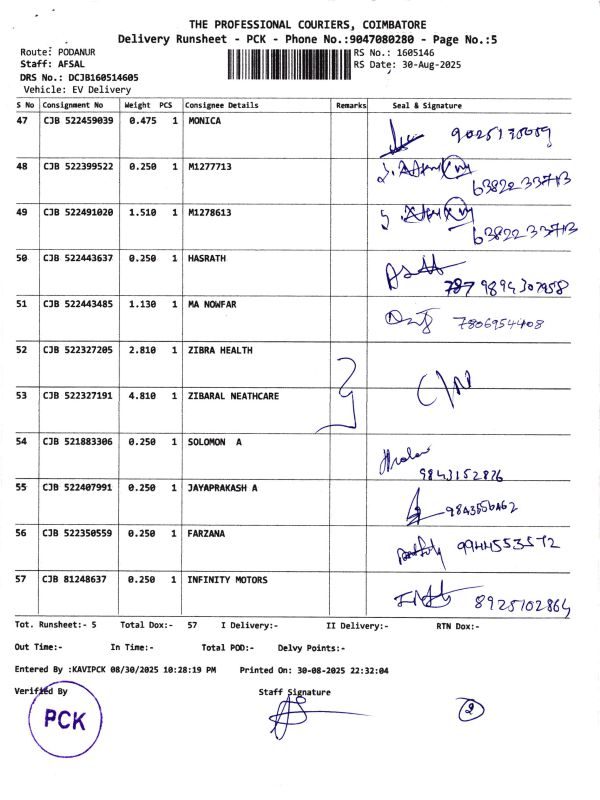 THE PROFESSIONAL COURIERS, COIMBATORE
Delivery Runsheet - PCK - Phone No.:9047080280 - Page No.:5
Route: PODANUR
RS No.: 1605146
Staff: AFSAL
RS Date: 30-Aug-2025
DRS No.: DCJB160514605
Vehicle: EV Delivery
S No Consignment No Weight PCS Consignee Details Remarks Seal & Signature
47 CJB 522459039 0.475 1 MONICA
48 CJB 522399522 0.250 1 M1277713
63822 33713
49 CJB 522491020 1.510 1 M1278613
63822 33713
50 CJB 522443637 0.250 1 HASRATH
9894307958
51 CJB 522443485 1.130 1 MA NOWFAR
7806954408
52 CJB 522327205 2.810 1 ZIBRA HEALTH
53 CJB 522327191 4.810 1 ZIBARAL NEATHCARE
C/N
54 CJB 521883306 0.250 1 SOLOMON A
9843152876
55 CJB 522407991 0.250 1 JAYAPRAKASH A
56 CJB 522350559 0.250 1 FARZANA
9944553572
57 CJB 81248637 0.250 1 INFINITY MOTORS
8925102864
Tot. Runsheet:- 5 Total Dox:- 57 I Delivery:- II Delivery:- RTN Dox:-
Out Time:- In Time:- Total POD:- Delvy Points:-
Entered By :KAVIPCK 08/30/2025 10:28:19 PM Printed On: 30-08-2025 22:32:04
Verified By Staff Signature
PCK
2